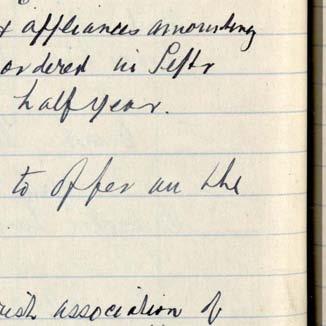 & appliances amounting
ordered in Septr
half year.
to offer on the
association of